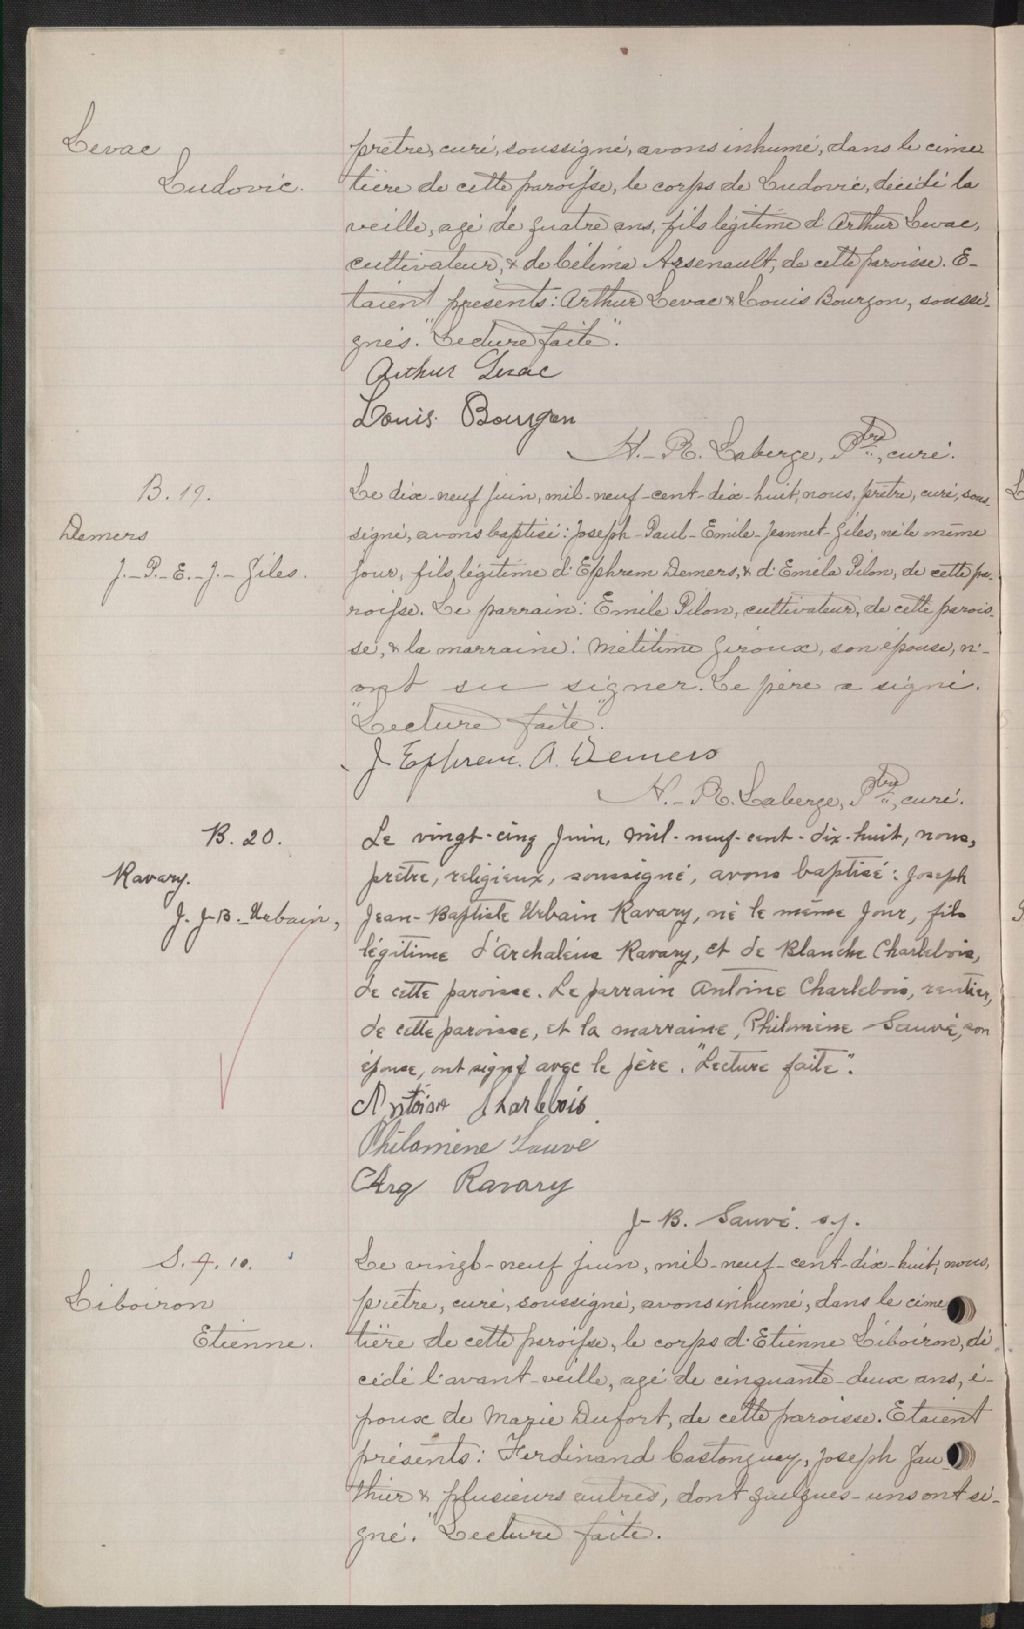 Levac
Ludovic.
prêtre, curé, soussigné, avons inhumé, dans le cime
tière de cette paroisse, le corps de Ludovic, décédé la
veille, agé de quatre ans, fils légitime d'Arthur Levac,
cultivateur, & de Célima Arsenault, de cette paroisse. E-
taient présents: Arthur Levac & Louis Bourgon, soussi-
gnés. "Lecture faite".
Arthur Levac
Louis Bourgon
H.-R. Laberge, Ptre, curé.
B. 19.
Demers
J.-P.-E.-J.-Giles.
Le dix-neuf juin, mil-neuf-cent-dix-huit, nous, prêtre, curé, sous-
signé, avons baptisé: Joseph-Paul-Emile-Jeannet-Giles, né le même
jour, fils légitime d'Ephrem Demers, & d'Eméla Pilon, de cette pa-
roisse. Le parrain: Emile Pilon, cultivateur, de cette parois-
se, & la marraine: Mélitime Giroux, son épouse, n'-
ont su signer. Le père a signé.
"Lecture faite".
J Ephrem. A. Demers
H.-R. Laberge, Ptre, curé.
B. 20.
Ravary.
J. J-B.-Urbain,
Le vingt-cinq Juin, mil-neuf-cent-dix-huit, nous,
prêtre, religieux, soussigné, avons baptisé: Joseph
Jean-Baptiste Urbain Ravary, né le même jour, fils
légitime d'Archaleus Ravary, et de Blanche Charlebois,
de cette paroisse. Le parrain Antoine Charlebois, rentier,
de cette paroisse, et la marraine, Philomène Sauvé, son
épouse, ont signé avec le père. "Lecture faite".
Antoine Charlebois
Philomène Sauvé
Arq Ravary
J-B. Sauvé. s.j.
S. 9. 10.
Liboiron
Etienne.
Le vingt-neuf juin, mil-neuf-cent-dix-huit, nous,
prêtre, curé, soussigné, avons inhumé, dans le cime
tière de cette paroisse, le corps d'Etienne Liboiron, dé
cédé l'avant-veille, agé de cinquante-deux ans, é-
poux de Marie Dufort, de cette paroisse. Etaient
présents: Ferdinand Castonguay, Joseph Gau-
thier & plusieurs autres, dont quelques-uns ont si-
gné. "Lecture faite.